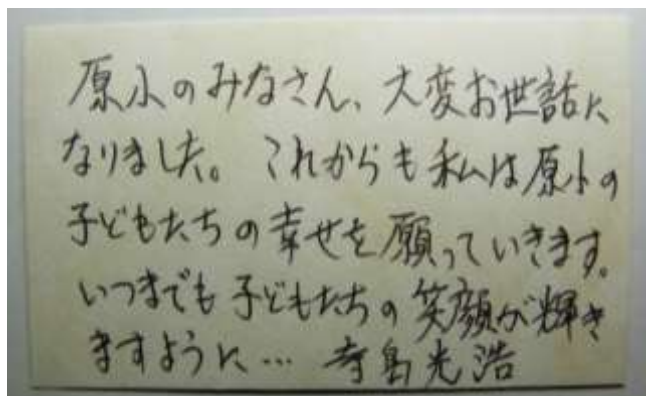 原小のみなさん、大変お世話に
なりました。これからも私は原小の
子どもたちの幸せを願っていきます。
いつまでも子どもたちの笑顔が輝き
ますように… 寺島光浩